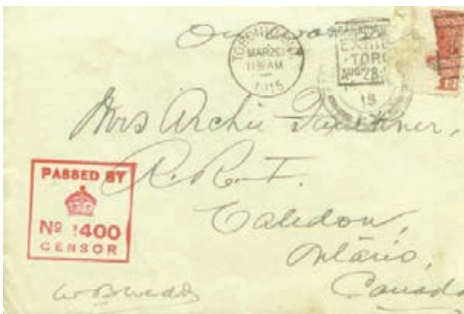 TORONTO, ONT.
MAR 20
11 30 AM
1915
EXHIB
TORO
AUG. 28.
15
Mrs Archie Faulkner,
R.R. I.
Caledon,
Ontario,
Canada
PASSED BY
Nº 1400
CENSOR